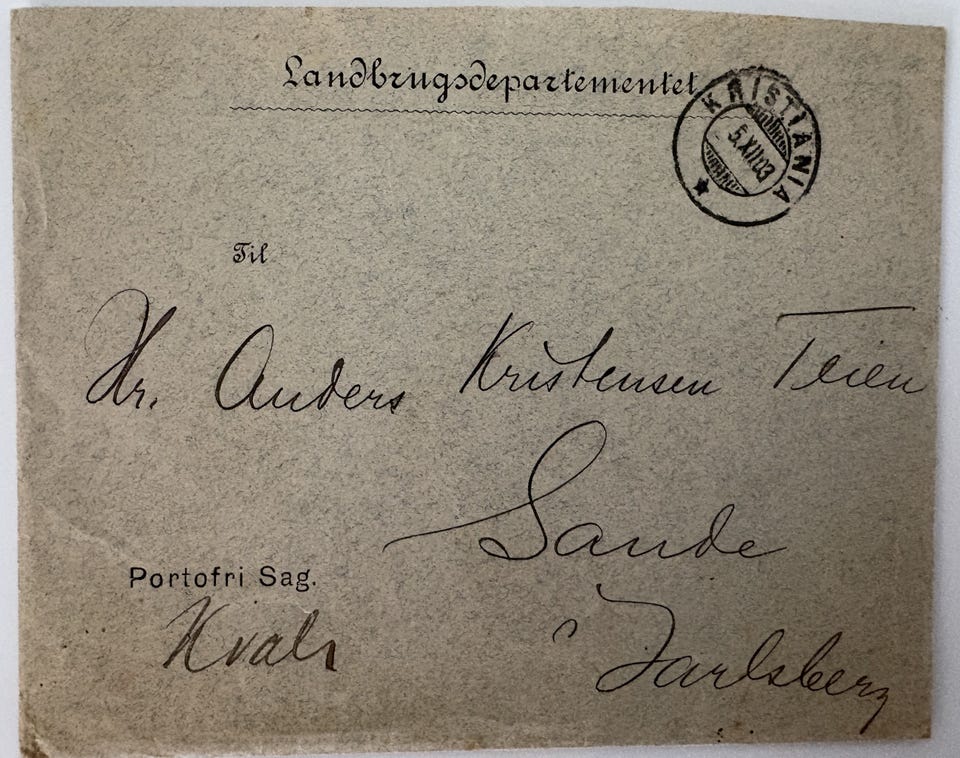 Landbrugsdepartementet
KRISTIANIA
5.XII.03
Til
Hr. Anders Kristensen Teien
Sande
i Jarlsberg
Portofri Sag.